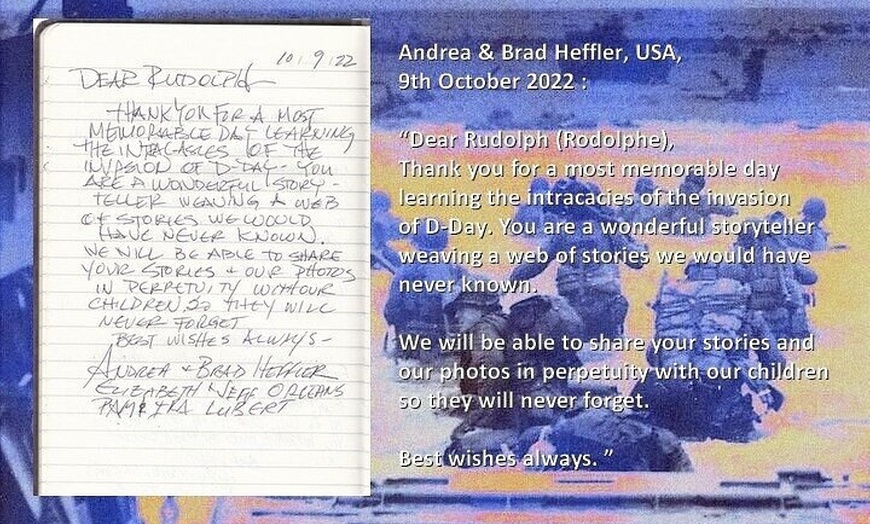 10/9/22
DEAR RUDOLPH
THANK YOU FOR A MOST
MEMORABLE DAY LEARNING
THE INTRACASIES OF THE
INVASION OF D-DAY. YOU
ARE A WONDERFUL STORY-
TELLER WEAVING A WEB
OF STORIES WE WOULD
HAVE NEVER KNOWN.
WE WILL BE ABLE TO SHARE
YOUR STORIES + OUR PHOTOS
IN PERPETUITY WITH OUR
CHILDREN, SO THEY WILL
NEVER FORGET
BEST WISHES ALWAYS-
ANDREA + BRAD HEFFLER
ELIZABETH + JEFF ORLEANS
PAM & IRA LUBERT
Andrea & Brad Heffler, USA,
9th October 2022 :
“Dear Rudolph (Rodolphe),
Thank you for a most memorable day
learning the intracacies of the invasion
of D-Day. You are a wonderful storyteller
weaving a web of stories we would have
never known.
We will be able to share your stories and
our photos in perpetuity with our children
so they will never forget.
Best wishes always. ”